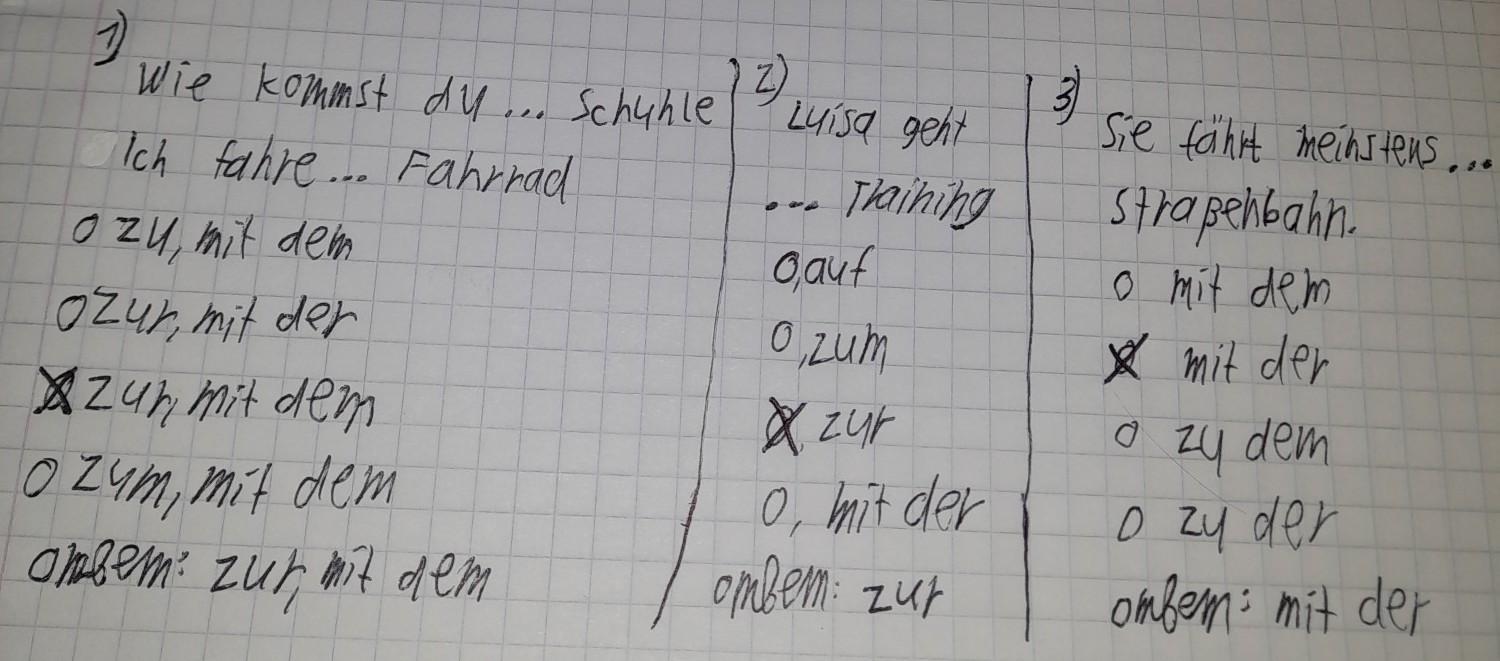 1)
Wie kommst du... Schuhle
Ich fahre... Fahrrad
O zu, mit dem
O zur, mit der
O zur, mit dem
O zum, mit dem
ответ: zur, mit dem
2)
Luisa geht
... Training
O, auf
O, zum
O, zur
O, mit der
ответ: zur
3)
Sie fährt meinstens...
Straßenbahn.
O mit dem
O mit der
O zu dem
O zu der
ответ: mit der